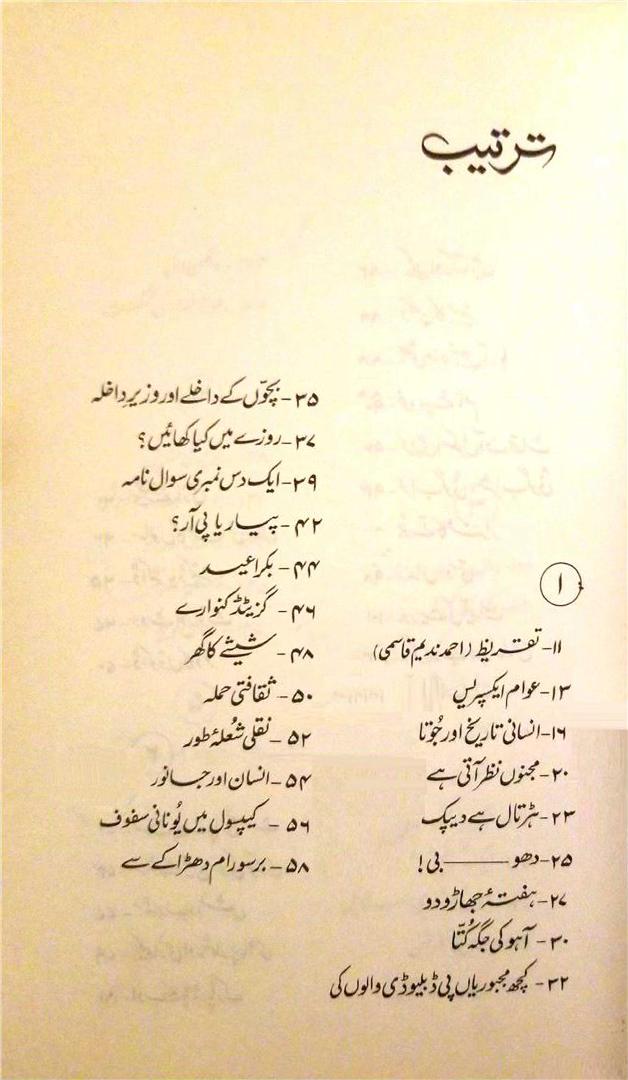 ترتیب
۱
۱۱- تقریظ (احمد ندیم قاسمی)
۱۳- عوام ایکسپریس
۱۶- انسانی تاریخ اور جُوتا
۲۰- مجنوں نظر آتی ہے
۲۳- ہڑتال ہے دیپک
۲۵- دھو——بی!
۲۷- ہفتۂ جھاڑو دو
۳۰- آہو کی جگہ کُتّا
۳۲- کچھ مجبوریاں پی ڈبلیو ڈی والوں کی
۳۵- بچّوں کے داخلے اور وزیرِ داخلہ
۳۷- روزے میں کیا کھائیں؟
۳۹- ایک دس نمبری سوال نامہ
۴۲- پیار یا پی آر؟
۴۴- بکرا عید
۴۶- گزیٹڈ کنوارے
۴۸- شیشے کا گھر
۵۰- ثقافتی حملہ
۵۲- نقلی شُعلۂ طور
۵۴- انسان اور جانور
۵۶- کیپسول میں یُونانی سفوف
۵۸- برسو رام دھڑاکے سے